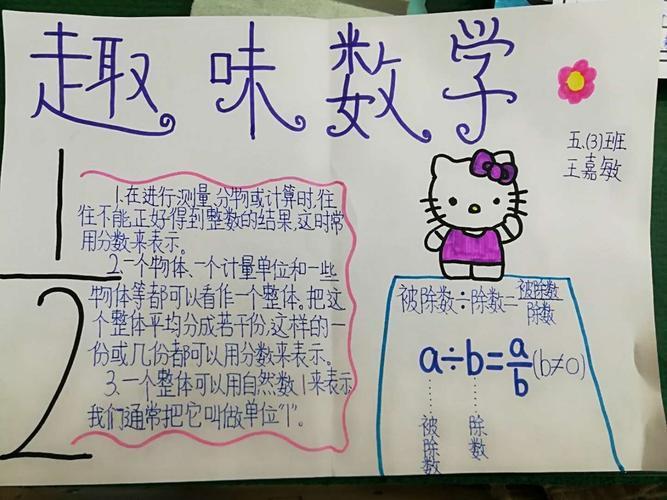 趣味数学
五.(3)班
王嘉敏
1
2
1.在进行测量,分物或计算时,往
往不能正好得到整数的结果,这时常
用分数来表示。
2.一个物体、一个计量单位和一些
物体等都可以看作一个整体。把这
个整体平均分成若干份,这样的一
份或几份都可以用分数来表示。
3.一个整体可以用自然数1来表示
我们通常把它叫做单位"1"。
被除数÷除数=被除数/除数
a÷b=a/b(b≠0)
被除数
除数